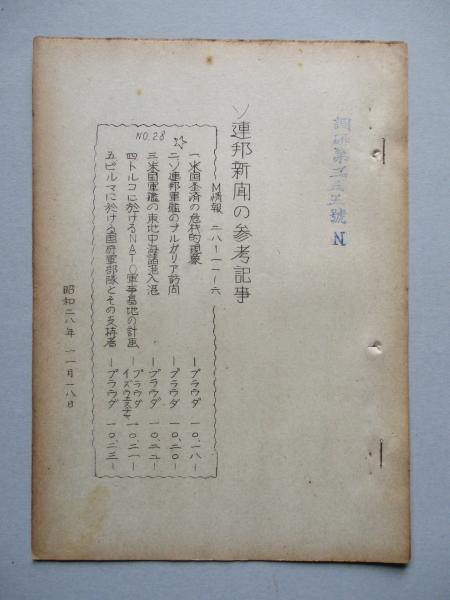 調研第五三五號 N
ソ連邦新聞の参考記事
M情報 二八-一一-六
NO.28
一、米国経済の危機的現象 —プラウダ 一〇、一八—
二、ソ連邦軍艦のブルガリア訪問 —プラウダ 一〇、二〇—
三、米国軍艦の東地中海諸港入港 —プラウダ 一〇、二二—
四、トルコに於けるNATO軍事基地の計画 —プラウダ イズヴェスチヤ 一〇、二一—
五、ビルマに於ける国府軍部隊とその支持者 —プラウダ 一〇、二三—
昭和二八年 一一月一八日